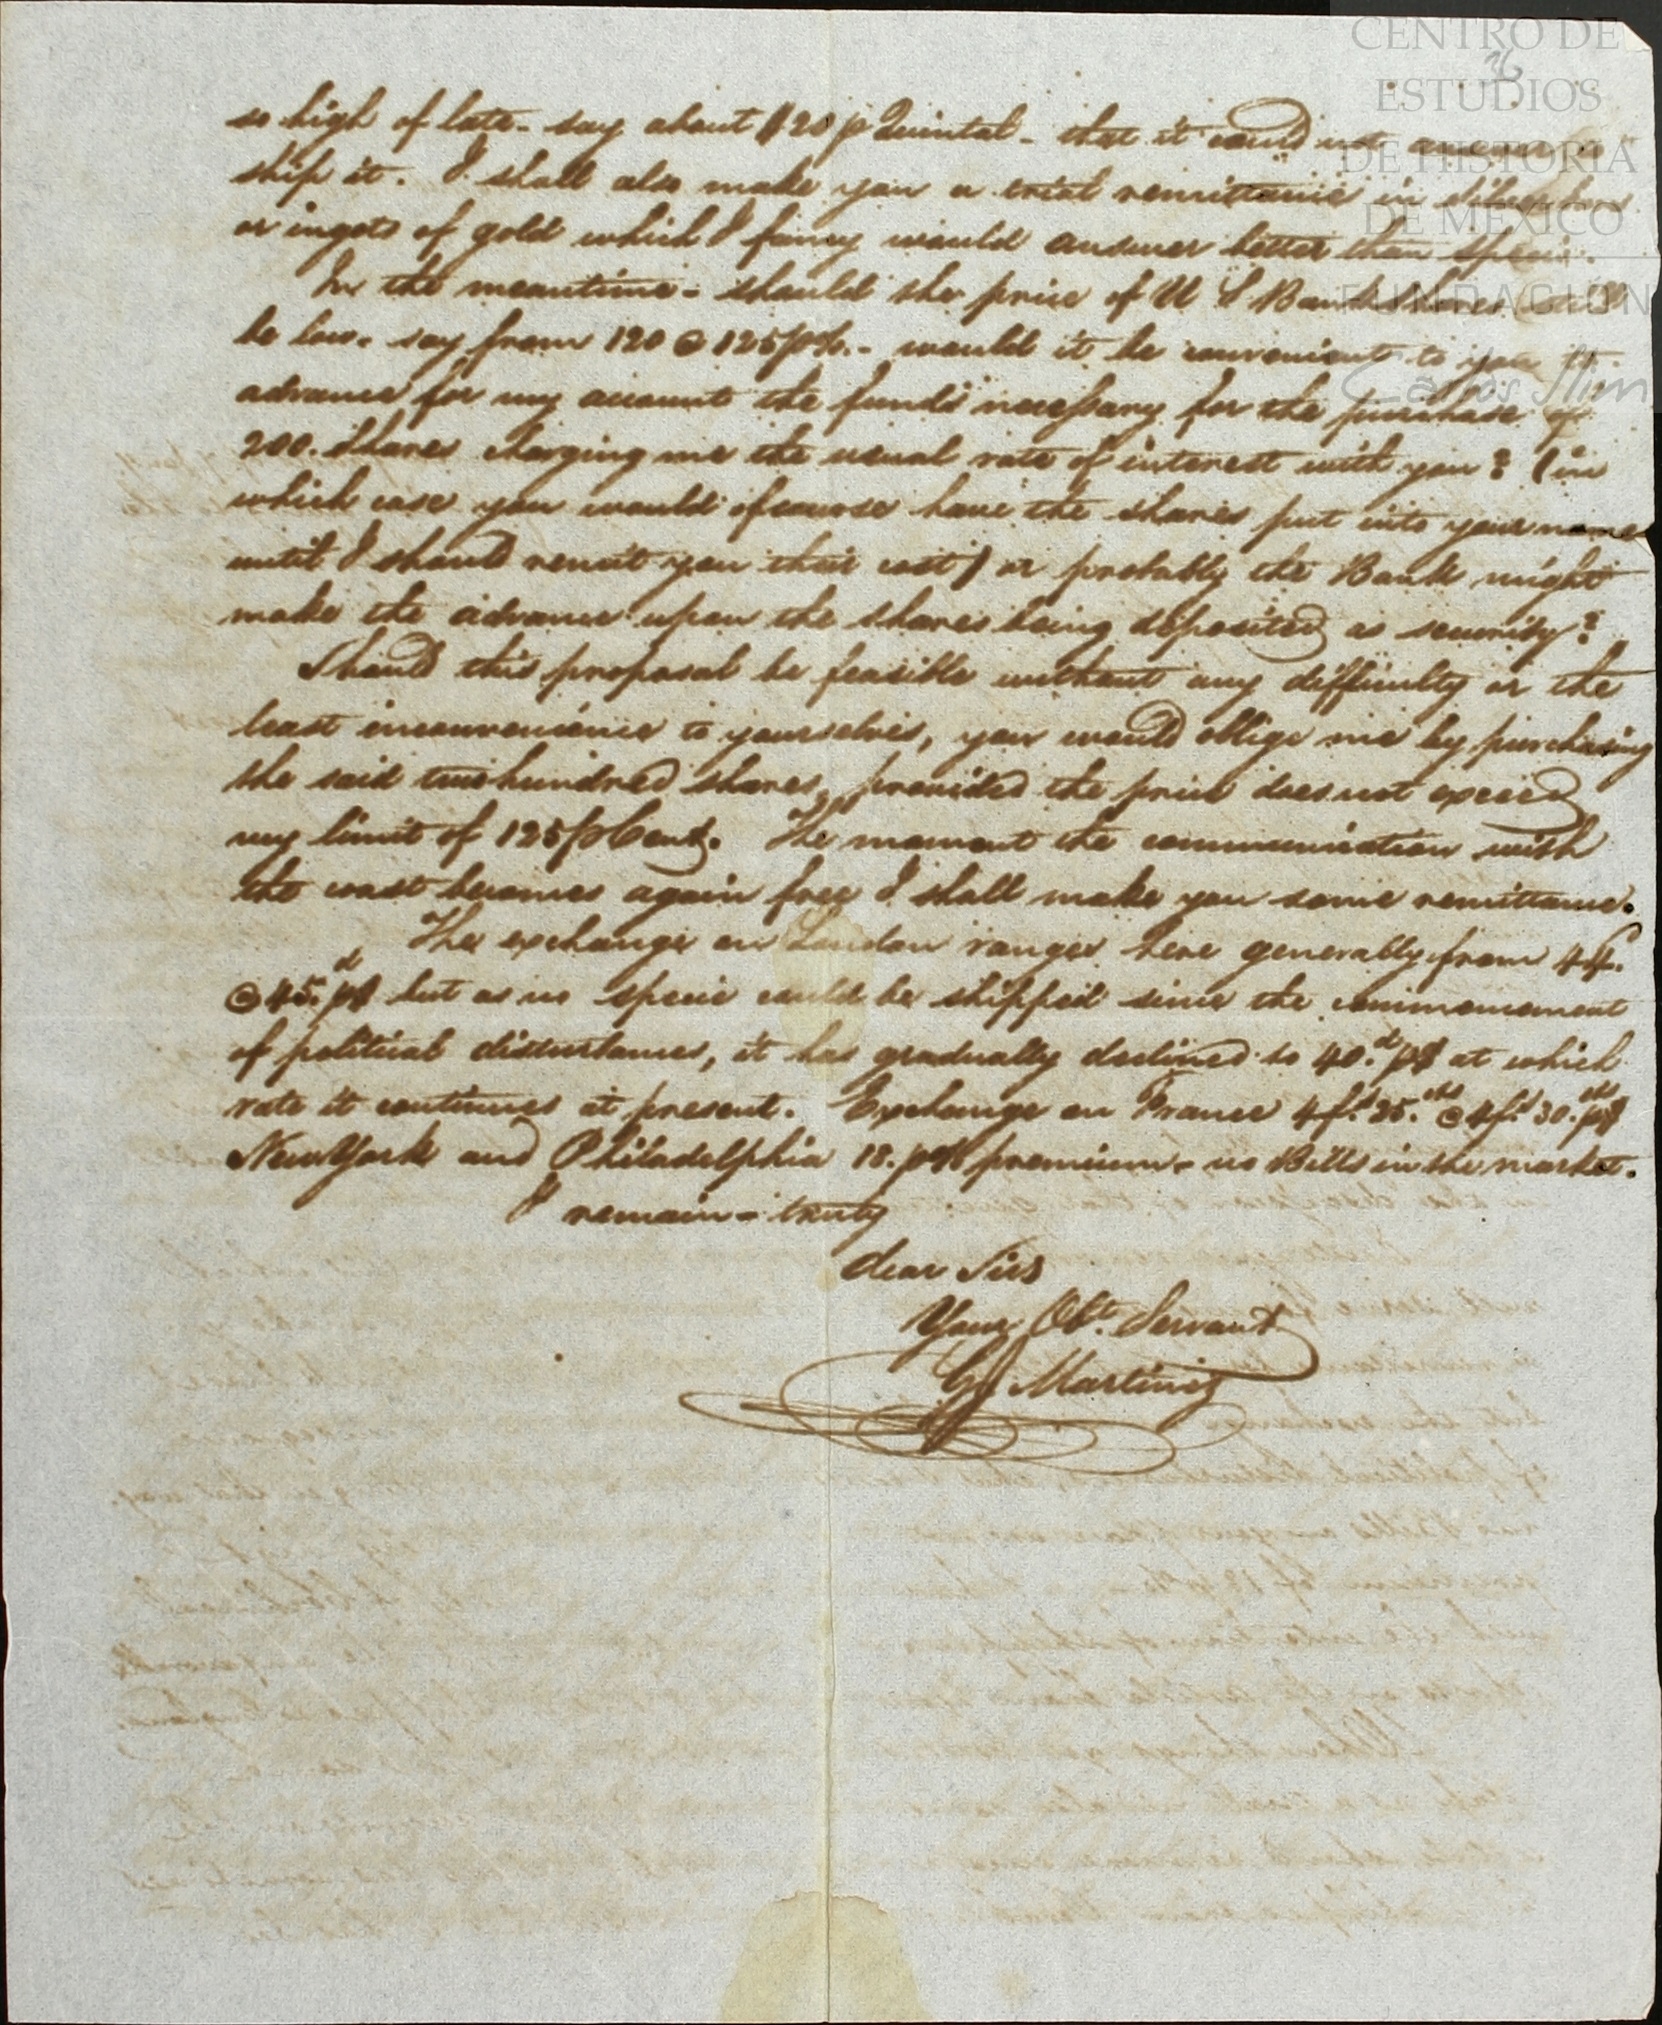 CENTRO DE
ESTUDIOS
DE HISTORIA
DE MEXICO
FUNDACION
Carlos Slim
26
so high of late - say about $20 p Quintal - that it could not answer to
ship it. I shall also make you a trial remittance in silver bars
or ingots of gold which I fancy would answer better than specie.
In the meantime - should the price of U S Bank shares still
be low - say from 120 @ 125 p%. - would it be convenient to you to
advance for my account the funds necessary for the purchase of
200. shares charging me the usual rate of interest with you? (in
which case you would ofcourse have the shares put into your name
until I should remit you their cost) or probably the Bank might
make the advance upon the shares being deposited as security?
Should this proposal be feasible without any difficulty or the
least inconvenience to yourselves, you would oblige me by purchasing
the said two hundred shares, provided the price does not exceed
my limit of 125 p Cent. The moment the communication with
the coast becomes again free I shall make you some remittance.
The exchange on London ranges here generally from 44.
@ 45.d p$ but as no specie could be shipped since the commencement
of political disturbances, it has gradually declined to 40.d p$ at which
rate it continues at present. Exchange on France 4f.s 25.cts @ 4f.s 30.cts p$
New York and Philadelphia 18. p% premium - no Bills in the market.
I remain - truly
dear Sirs
Your Obt. Servant
Martinez